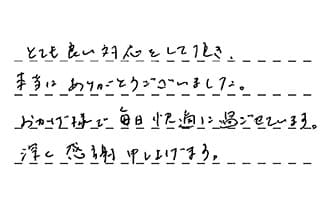 とても良い対応をして頂き、
本当にありがとうございました。
おかげ様で毎日快適に過ごせています。
深く感謝申し上げます。